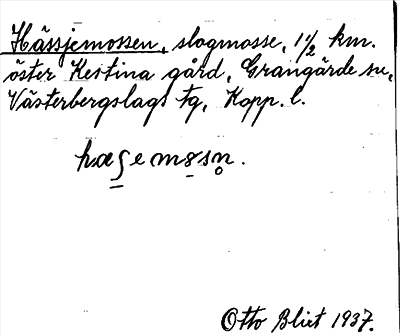 Hässjemossen, slogmosse, 1 1/2 km.
öster Kestina gård, Grangärde sn,
Västerbergslags tg, Kopp. l.
hæʂemɞsn̥.
Otto Blixt 1937.